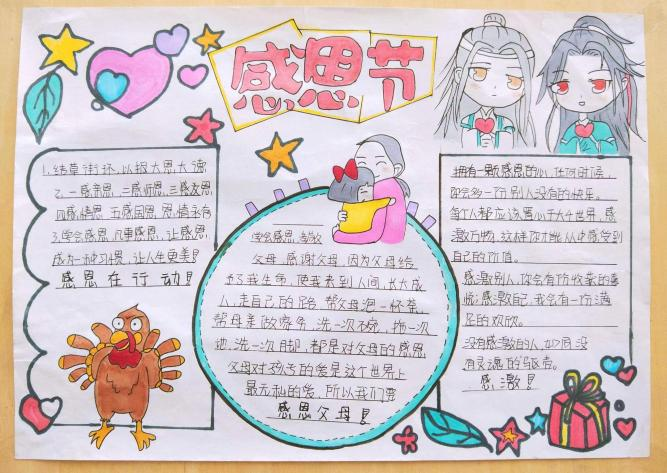 感恩节
1.结草衔环,以报大恩大德
2.一感亲恩,二感师恩,三感友恩
四感情恩 五感国恩,恩值还有
3.学会感恩,凡事感恩,让感恩
成为一种习惯,让人生更美!
感恩在行动!
学会感恩,孝敬
父母,感谢父母,因为父母给
了我生命,使我来到人间,长大成
人,走自己的路,帮父母泡一杯茶,
帮母亲做家务,洗一次碗,拖一次
地,洗一次脚,都是对父母的感恩
父母对孩子的爱是这个世界上
最无私的爱,所以我们要
感恩父母!
拥有一颗感恩的心,任何时候,
你会多一份别人没有的快乐。
每个人都应该置心于大千世界,感
激万物,这样你才能从中感受到
自己的价值。
感激别人,你会有份收获的喜
悦;感激自己,我会有一份满
足的欢欣。
没有感激的人,如同没
有灵魂的躯壳。
感激!